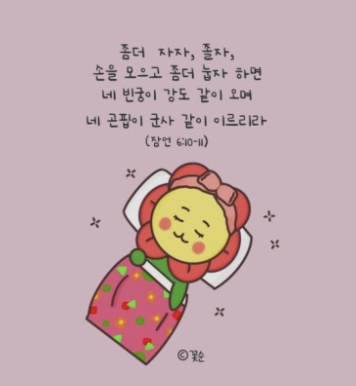 좀더 자자, 졸자,
손을 모으고 좀더 눕자 하면
네 빈궁이 강도 같이 오며
네 곤핍이 군사 같이 이르리라
(잠언 6:10-11)
©꽃순